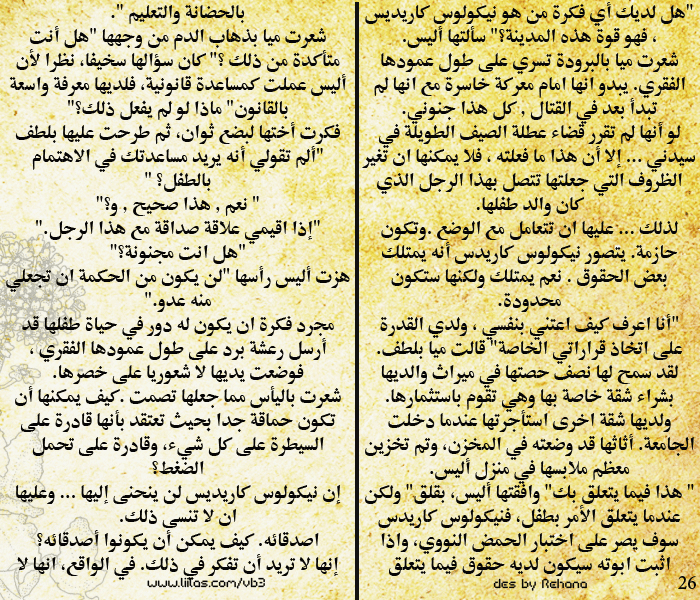 "هل لديك أي فكرة من هو نيكولوس كاريديس
، فهو قوة هذه المدينة؟" سألتها أليس.
شعرت ميا بالبرودة تسري على طول عمودها
الفقري. يبدو انها امام معركة خاسرة مع انها لم
تبدأ بعد في القتال , كل هذا جنوني.
لو أنها لم تقرر قضاء عطلة الصيف الطويلة في
سيدني ... إلا أن هذا ما فعلته ، فلا يمكنها ان تغير
الظروف التي جعلتها تتصل بهذا الرجل الذي
كان والد طفلها.
لذلك ... عليها ان تتعامل مع الوضع .وتكون
حازمة. يتصور نيكولوس كاريدس أنه يمتلك
بعض الحقوق . نعم يمتلك ولكنها ستكون
محدودة.
"أنا اعرف كيف اعتني بنفسي ، ولدي القدرة
على اتخاذ قراراتي الخاصة" قالت ميا بلطف.
لقد سمح لها نصف حصتها في ميراث والديها
بشراء شقة خاصة بها وهي تقوم باستثمارها.
ولديها شقة اخرى استأجرتها عندما دخلت
الجامعة. أثاثها قد وضعته في المخزن، وتم تخزين
معظم ملابسها في منزل أليس.
" هذا فيما يتعلق بك" وافقتها أليس، بقلق" ولكن
عندما يتعلق الأمر بطفل، فنيكولوس كاريدس
سوف يصر على اختبار الحمض النووي، واذا
اثبت ابوته سيكون لديه حقوق فيما يتعلق
بالحضانة والتعليم ".
شعرت ميا بذهاب الدم من وجهها "هل أنت
متأكدة من ذلك ؟" كان سؤالها سخيفا، نظرا لأن
أليس عملت كمساعدة قانونية، فلديها معرفة واسعة
بالقانون" ماذا لو لم يفعل ذلك؟"
فكرت أختها لبضع ثوان، ثم طرحت عليها بلطف
"ألم تقولي أنه يريد مساعدتك في الاهتمام
بالطفل؟ "
" نعم , هذا صحيح , و؟"
"إذا اقيمي علاقة صداقة مع هذا الرجل."
"هل انت مجنونة؟"
هزت أليس رأسها "لن يكون من الحكمة ان تجعلي
منه عدو."
مجرد فكرة ان يكون له دور في حياة طفلها قد
أرسل رعشة برد على طول عمودها الفقري ،
فوضعت يديها لا شعوريا على خصرها.
شعرت باليأس مما جعلها تصمت .كيف يمكنها أن
تكون حماقة جدا بحيث تعتقد بأنها قادرة على
السيطرة على كل شيء، وقادرة على تحمل
الضغط؟
إن نيكولوس كاريديس لن ينحنى إليها ... وعليها
ان لا تنسى ذلك.
اصدقائه. كيف يمكن أن يكونوا أصدقائه؟
إنها لا تريد أن تفكر في ذلك. في الواقع، انها لا
www.liilas.com/vb3
des by Rehana
26